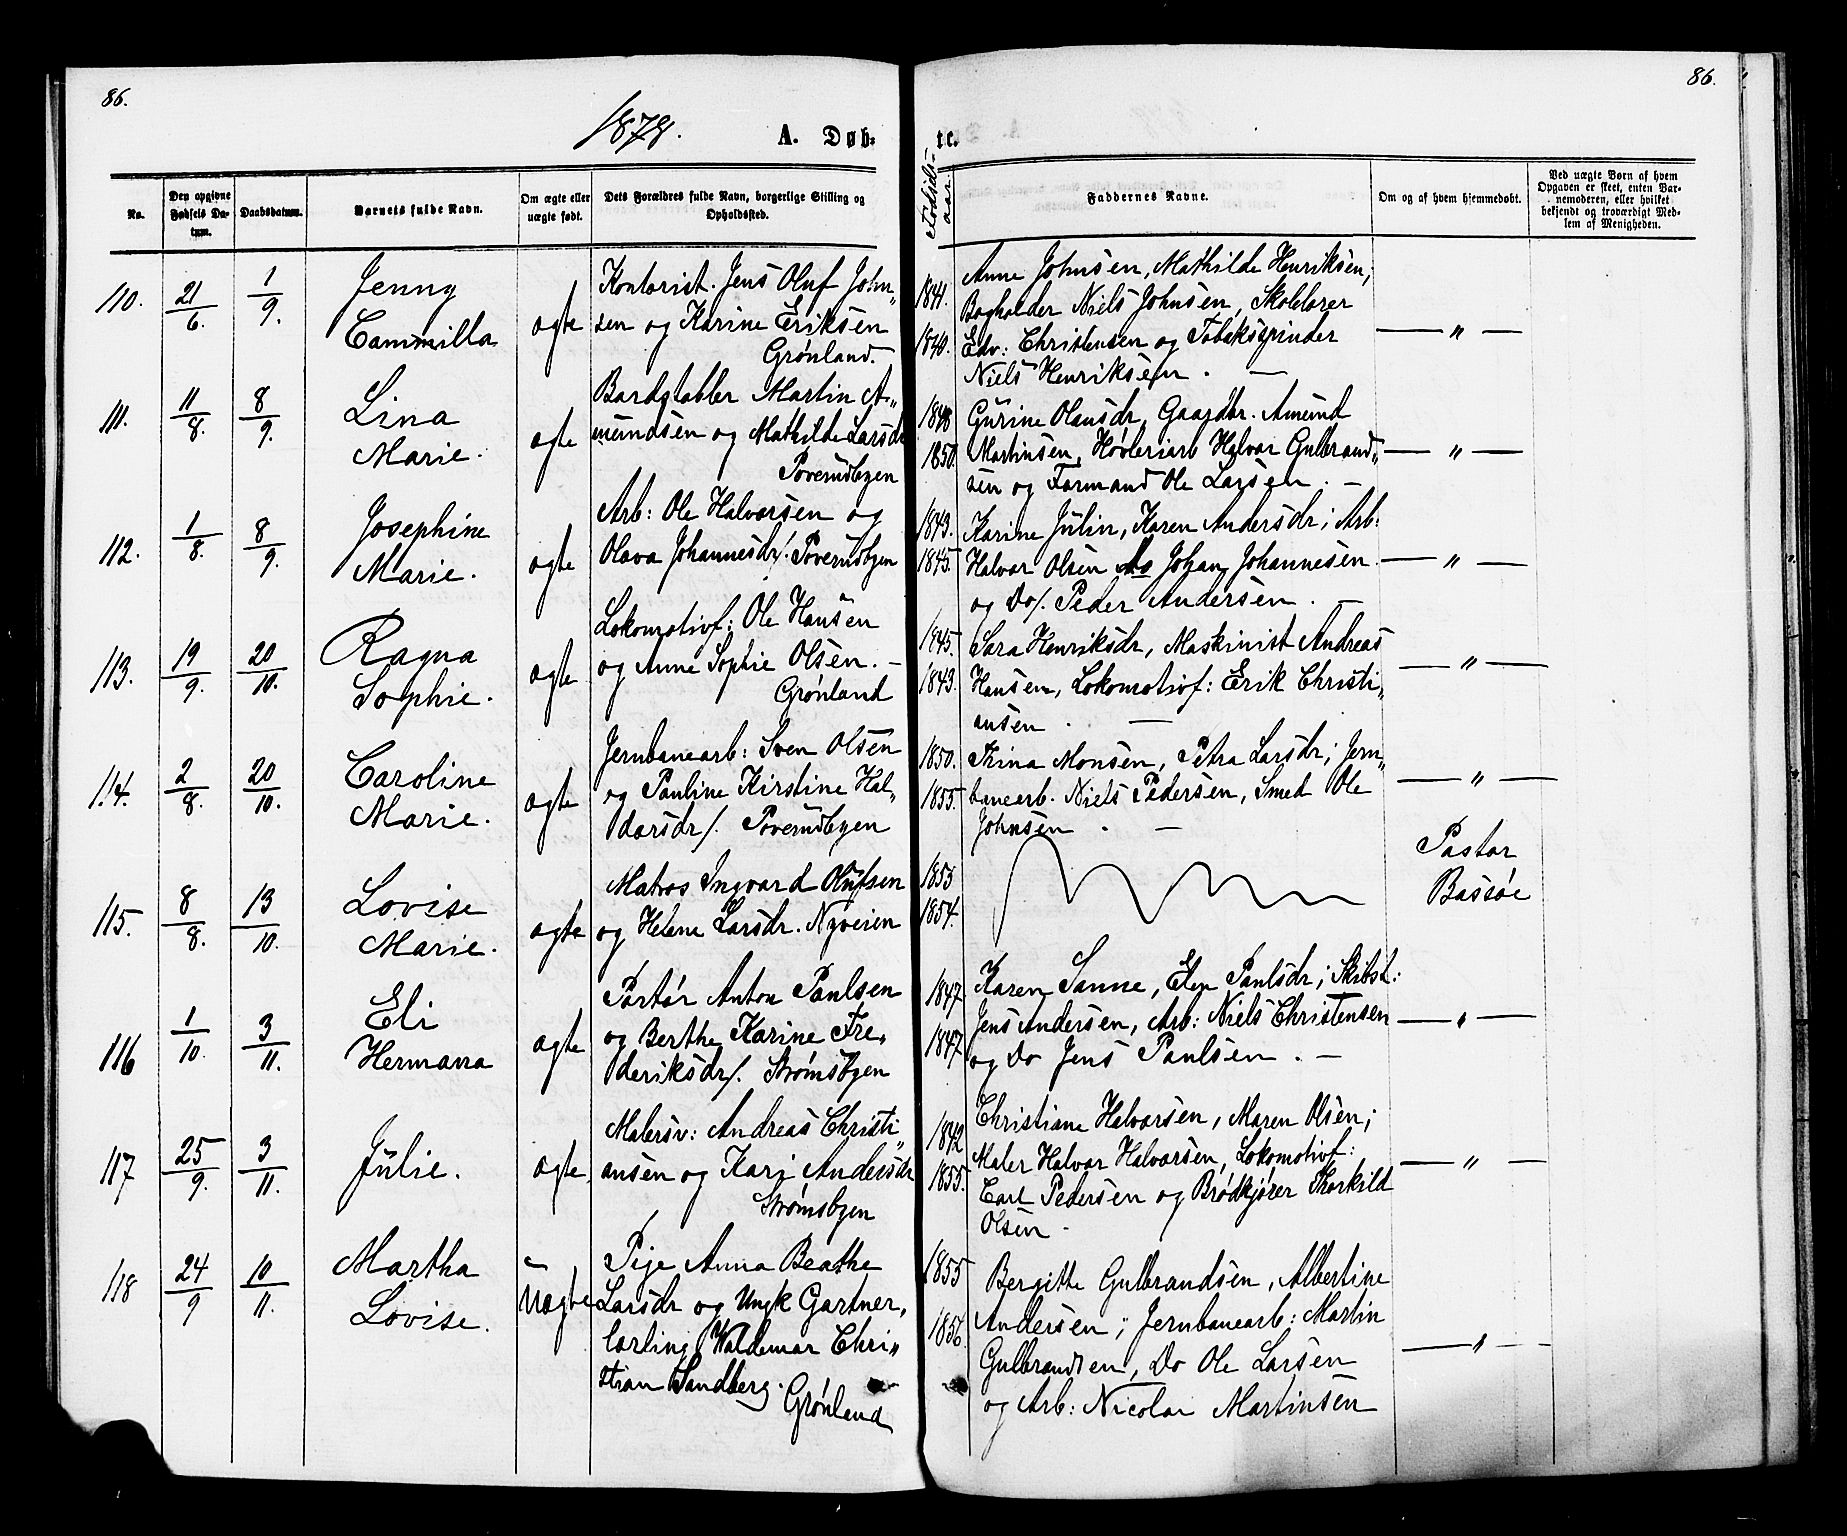 86.
86.
1878.
A. Døb-
te.
No.
Den opgivne Fødsels Datum.
Daabsdatum.
Barnets fulde Navn.
Om ægte eller uægte født.
Dets Forældres fulde Navn, borgerlige Stilling og Opholdssted.
Fødselsaar.
Faddernes Navne.
Om og af hvem hjemmedøbt.
Ved uægte Børn af hvem Opgaven er skeet, enten Barnemoderen, eller hvilket bekjendt og troværdigt Medlem af Menigheden.
110. 21/6. 1/9.
Jenny
Cammilla
ægte
Kontorist. Jens Oluf John„
sen og Karine Eriksen
Grønland.
1841.
1840.
Anne Johnsen, Mathilde Henriksen;
Bogholder Niels Johnsen, Skolelærer
Edv: Christensen og Tobakspinder
Niels Henriksen. —
— „ —
111. 11/8. 8/9.
Lina
Marie.
ægte
Bordstabler Martin A„
mundsen og Mathilde Larsdr
Poverudbyen
1848
1850.
Gurine Olausdr, Gaardbr. Amund
Martinsen, Høvleriarb Halvor Gulbrand„
sen og Formand Ole Larsen. —
— „ —
112. 1/8. 8/9.
Josephine
Marie.
ægte
Arb: Ole Halvorsen og
Olava Johannesdr/. Poverudbyen
1843.
1845.
Karine Julin, Karen Andersdr; Arb:
Halvor Olsen Do Johan Johannesen
og Do/. Peder Andersen. —
— „ —
113. 19/9. 20/10.
Ragna
Sophie.
ægte
Lokomotivf: Ole Hansen
og Anne Sophie Olsen. —
Grønland
1845.
1843.
Sara Henriksdr, Maskinist Andreas
Hansen, Lokomotivf: Erik Christi„
ansen. —
— „ —
114. 2/8. 20/10.
Caroline
Marie.
ægte
Jernbanearb: Sven Olsen
og Pauline Kirstine Hal„
vorsdr/. Poverudbyen
1850.
1855.
Trina Monsen, Petra Larsdr; Jern„
banearb. Niels Pedersen, Smed Ole
Johnsen. —
— „ —
115. 8/8. 13/10.
Lovise
Marie.
ægte
Matros Ingvard Olufsen
og Helene Larsdr. Nyveien
1853
1854.
Pastor
Bassøe
116 1/10. 3/11.
Eli
Hermana
ægte
Portør Anton Paulsen
og Berthe Karine Fre„
deriksdr/. Strømsbyen
1847
1847
Karen Sanne, Elen Paulsdr; Skibst:
Jens Andersen, Arb: Niels Christensen
og Do Jens Paulsen. —
— „ —
117 25/9. 3/11.
Julie.
ægte
Malersv: Andreas Christi„
ansen og Kari Andersdr
Strømsbyen
1842
1855.
Christiane Halvorsen, Maren Olsen;
Maler Halvor Halvorsen, Lokomotivf:
Carl Pedersen og Brødkjører Thorkild
Olsen.
— „ —
118 24/9 10/11.
Martha
Lovise.
Uægte
Pige Anna Beathe
Larsdr og Ungk Gartner„
lærling Waldemar Chri„
stian Sandberg.
Grønland
1855
1856.
Bergitte Gulbrandsen, Albertine
Andersen; Jernbanearb: Martin
Gulbrandsen, Do Ole Larsen
og Arb: Nicolai Martinsen
— „ —